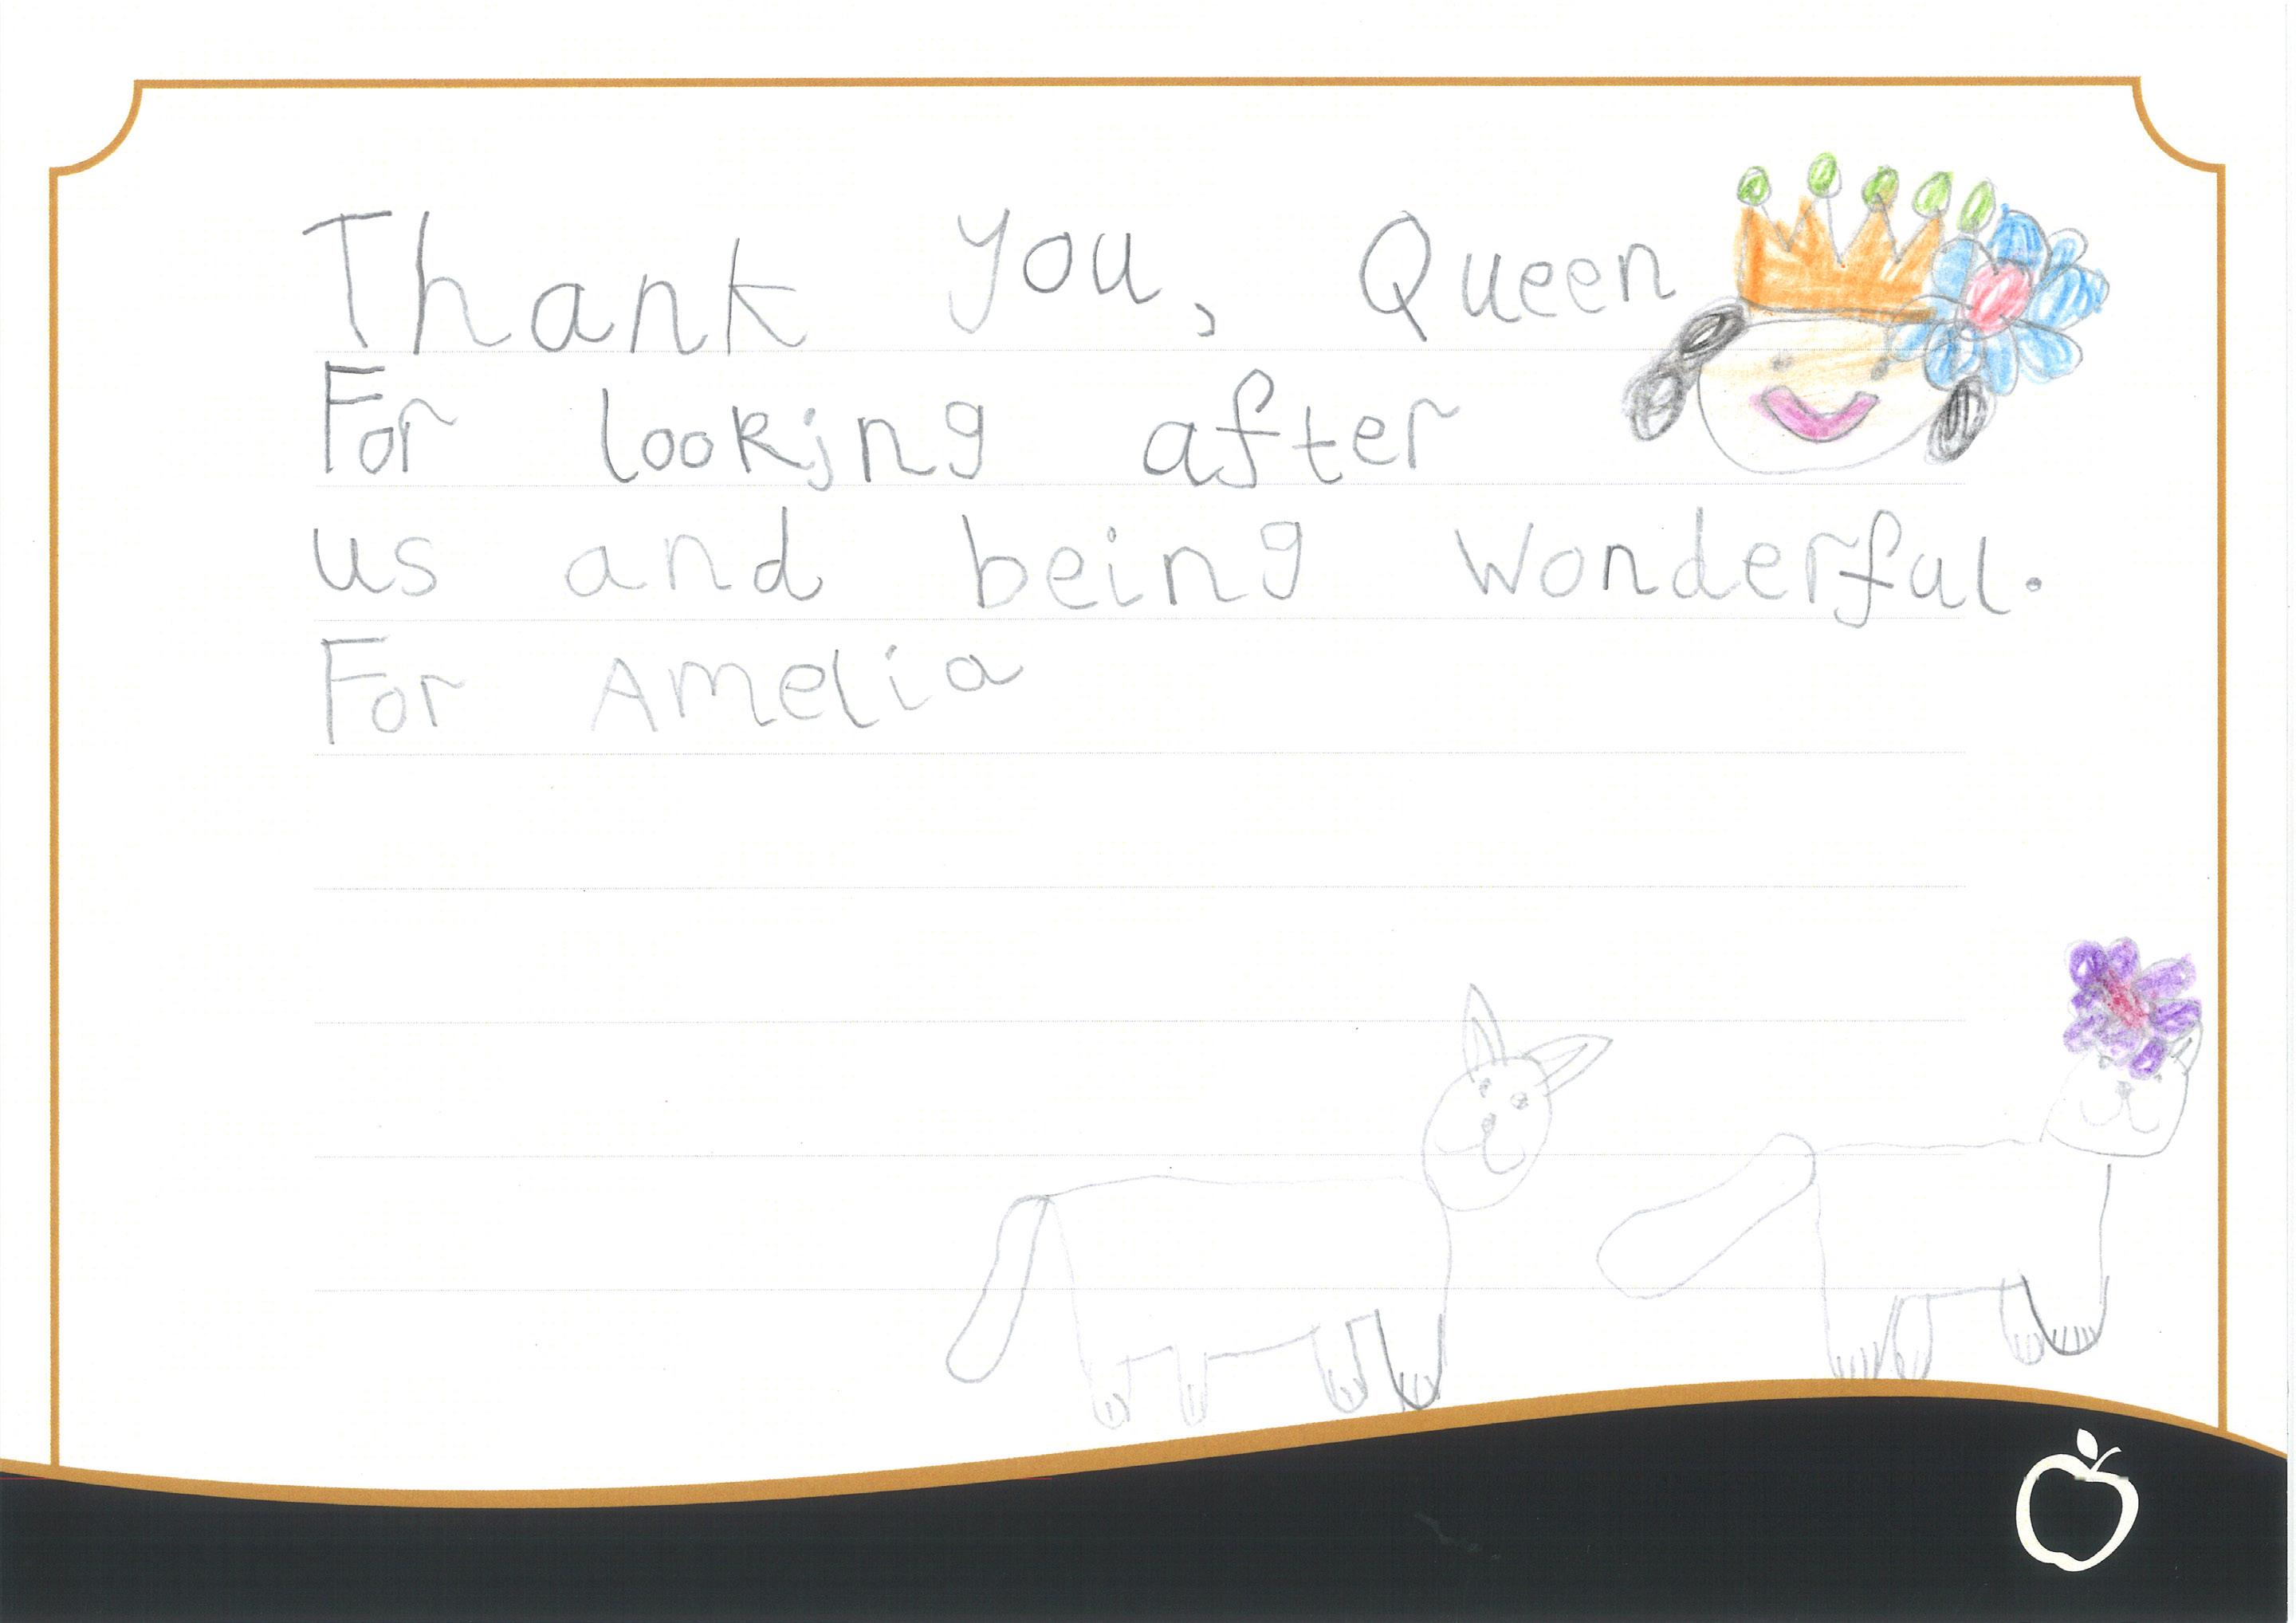 Thank you, Queen
For looking after
us and being Wonderful.
For Amelia